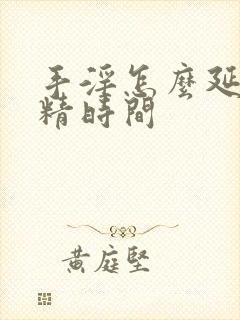 手淫怎麼延
精時間
黃庭堅